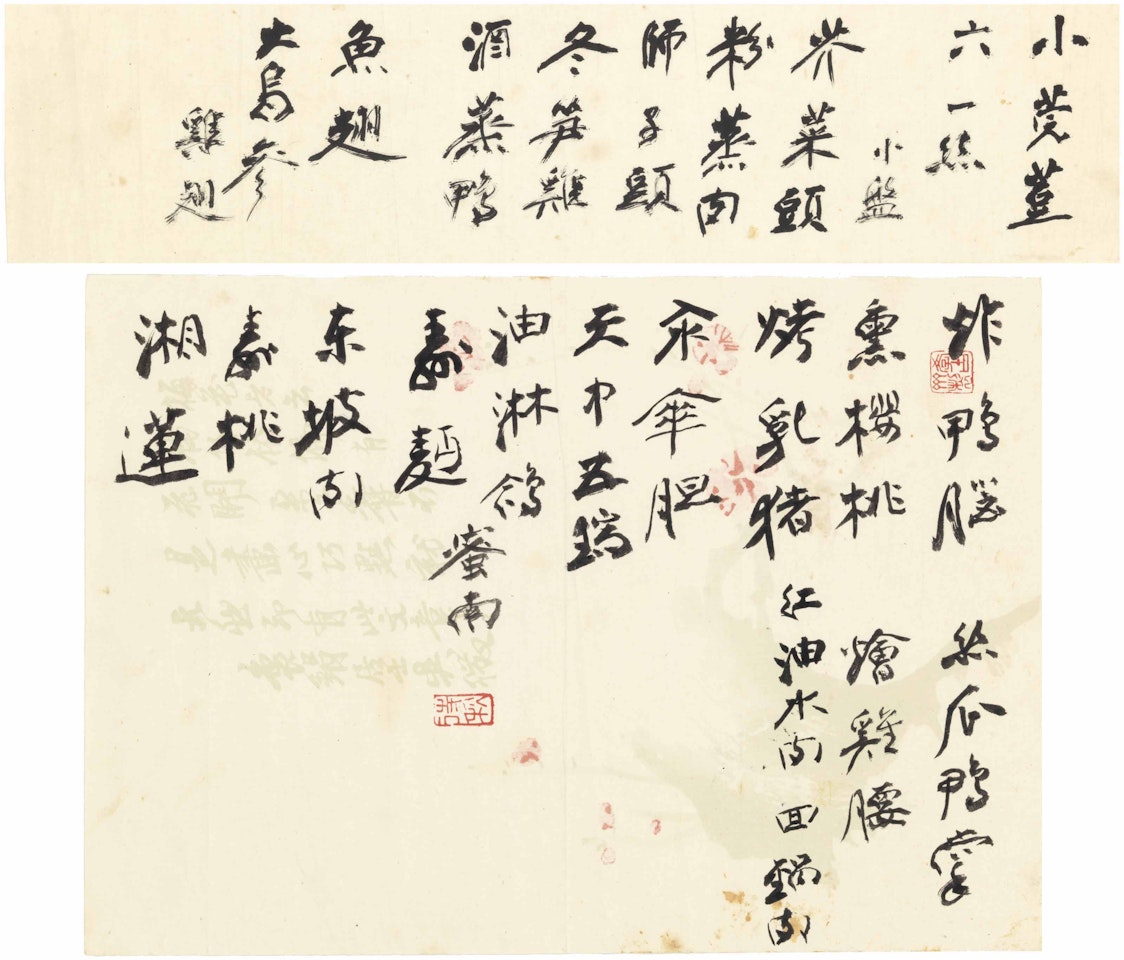 小莞荳
六一絲
小盤
芥菜頭
粉蒸肉
师子頭
冬笋雞
酒蒸鴨
魚翅
大烏參
雞翅
炸鴨腦 絲瓜鴨掌
熏櫻桃 燴雞腰
烤乳猪 红油水肉 回鍋肉
氽傘胆
天中五瑞
油淋鴿
蜜南
壽麵
东坡肉
壽桃
湘蓮